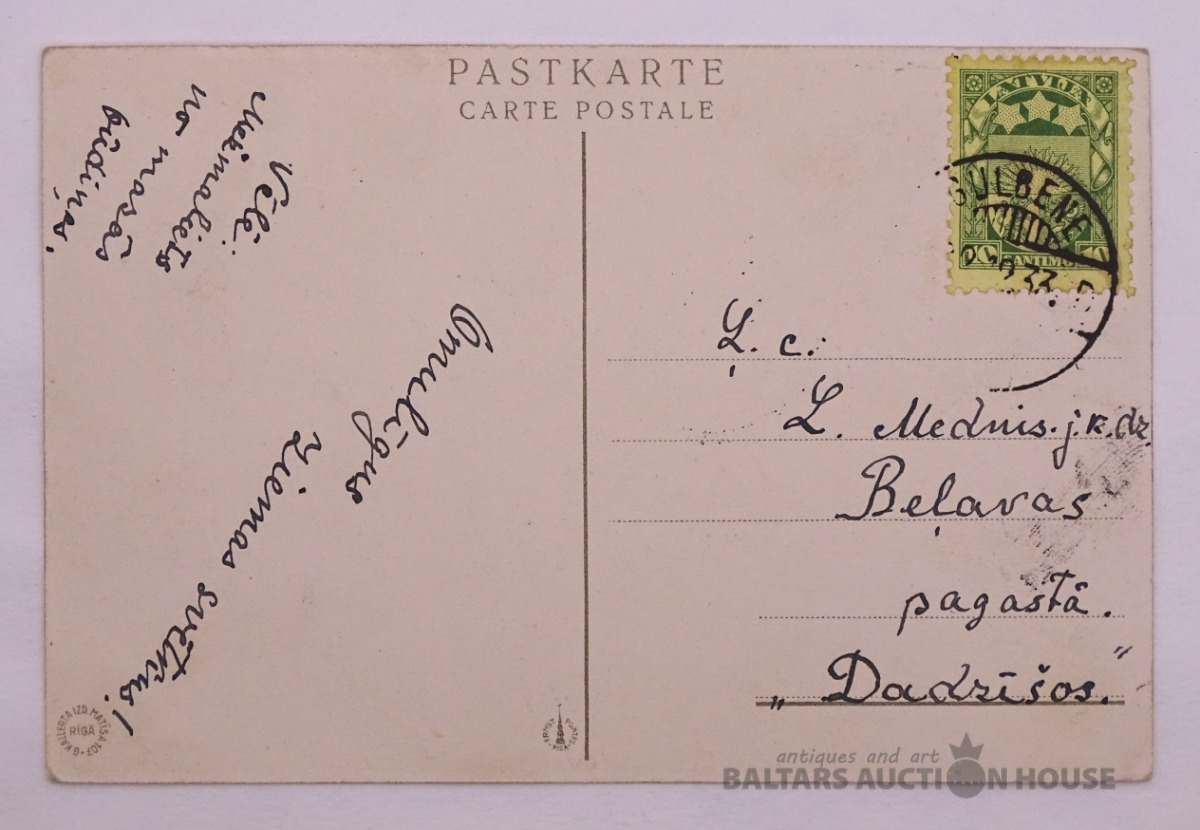 PASTKARTE
CARTE POSTALE
LATVIJA
10 SANTIMU 10
GULBENE
33.
Omulīgus
Ziemas svētkus!
Vēlē:
no mazās
būdiņas.
Ļ. c.
L. Mednis. jk. dz.
Beļavas
pagastā.
„Dadzīšos."
G. KALLERTA IZD. MATĪSA 107
RĪGĀ
antiques and art
BALTARS AUCTION HOUSE